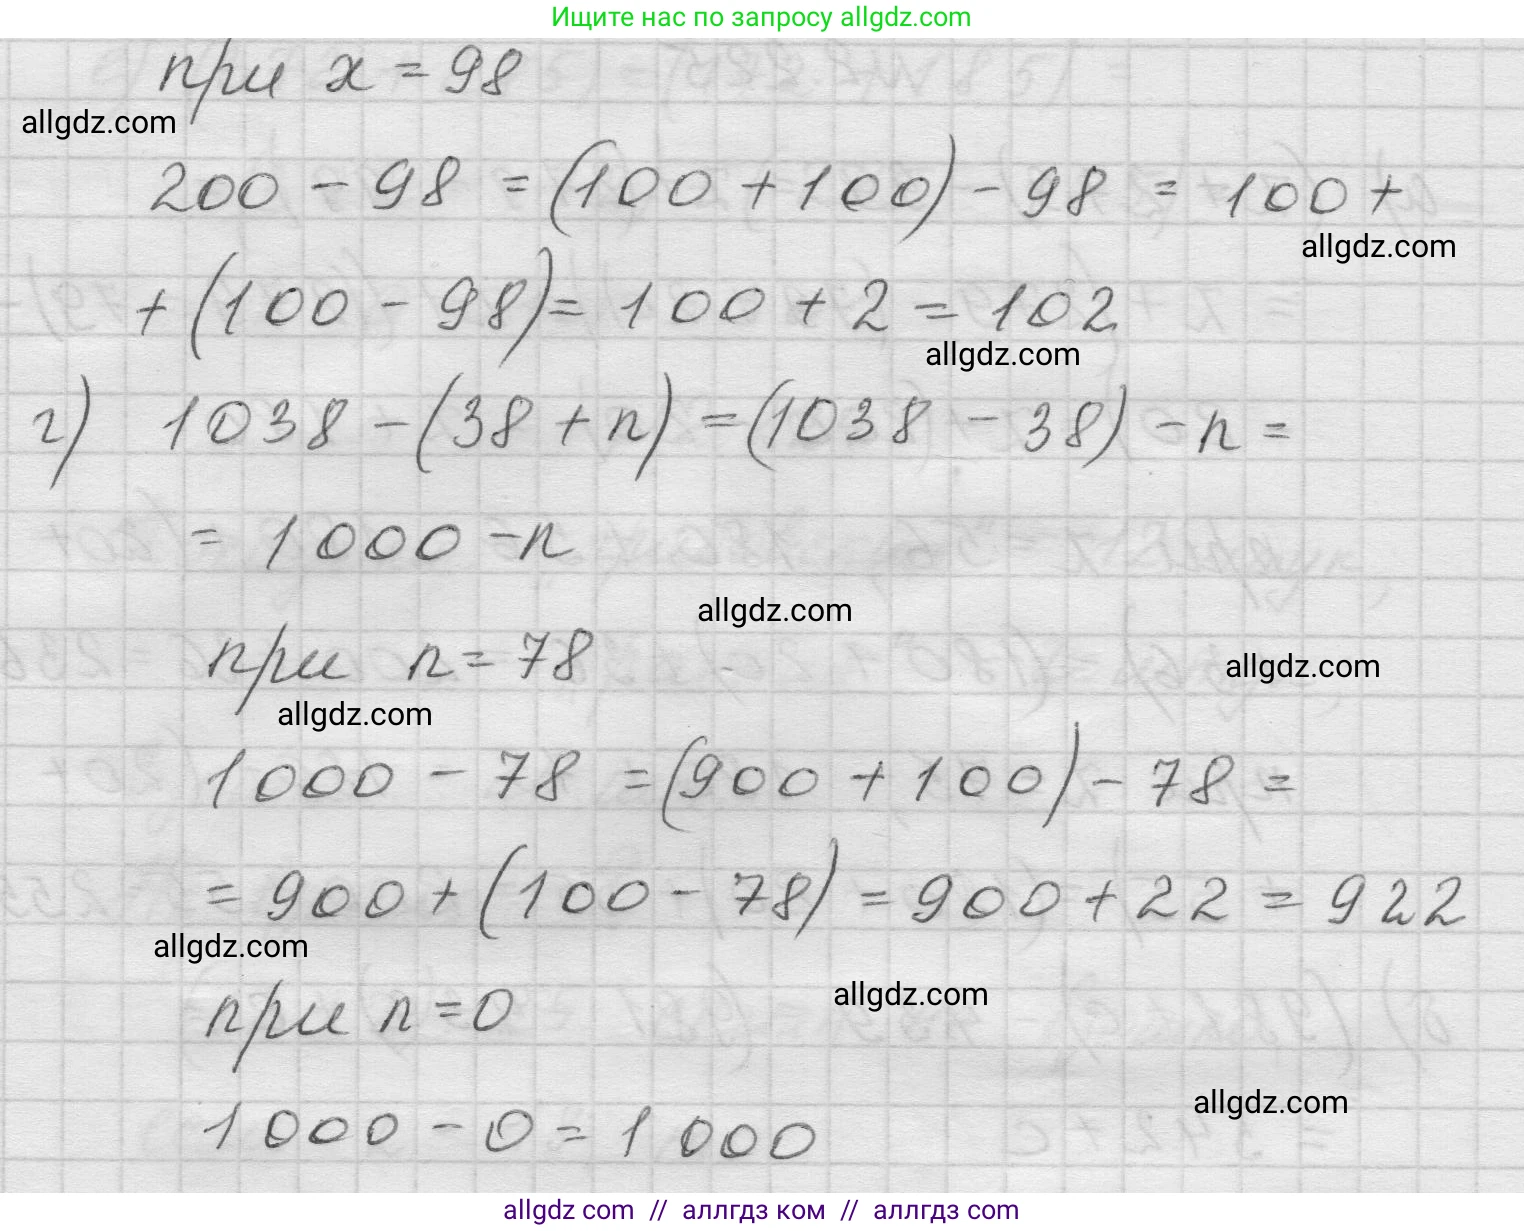 Ищите нас по запросу allgdz.com
при x = 98
allgdz.com
200 - 98 = (100 + 100) - 98 = 100 +
allgdz.com
+ (100 - 98) = 100 + 2 = 102
allgdz.com
г) 1038 - (38 + n) = (1038 - 38) - n =
= 1000 - n
allgdz.com
при n = 78
allgdz.com
allgdz.com
1000 - 78 = (900 + 100) - 78 =
= 900 + (100 - 78) = 900 + 22 = 922
allgdz.com
при n = 0
allgdz.com
allgdz.com
1000 - 0 = 1000
allgdz com // аллгдз ком // аллгдз com